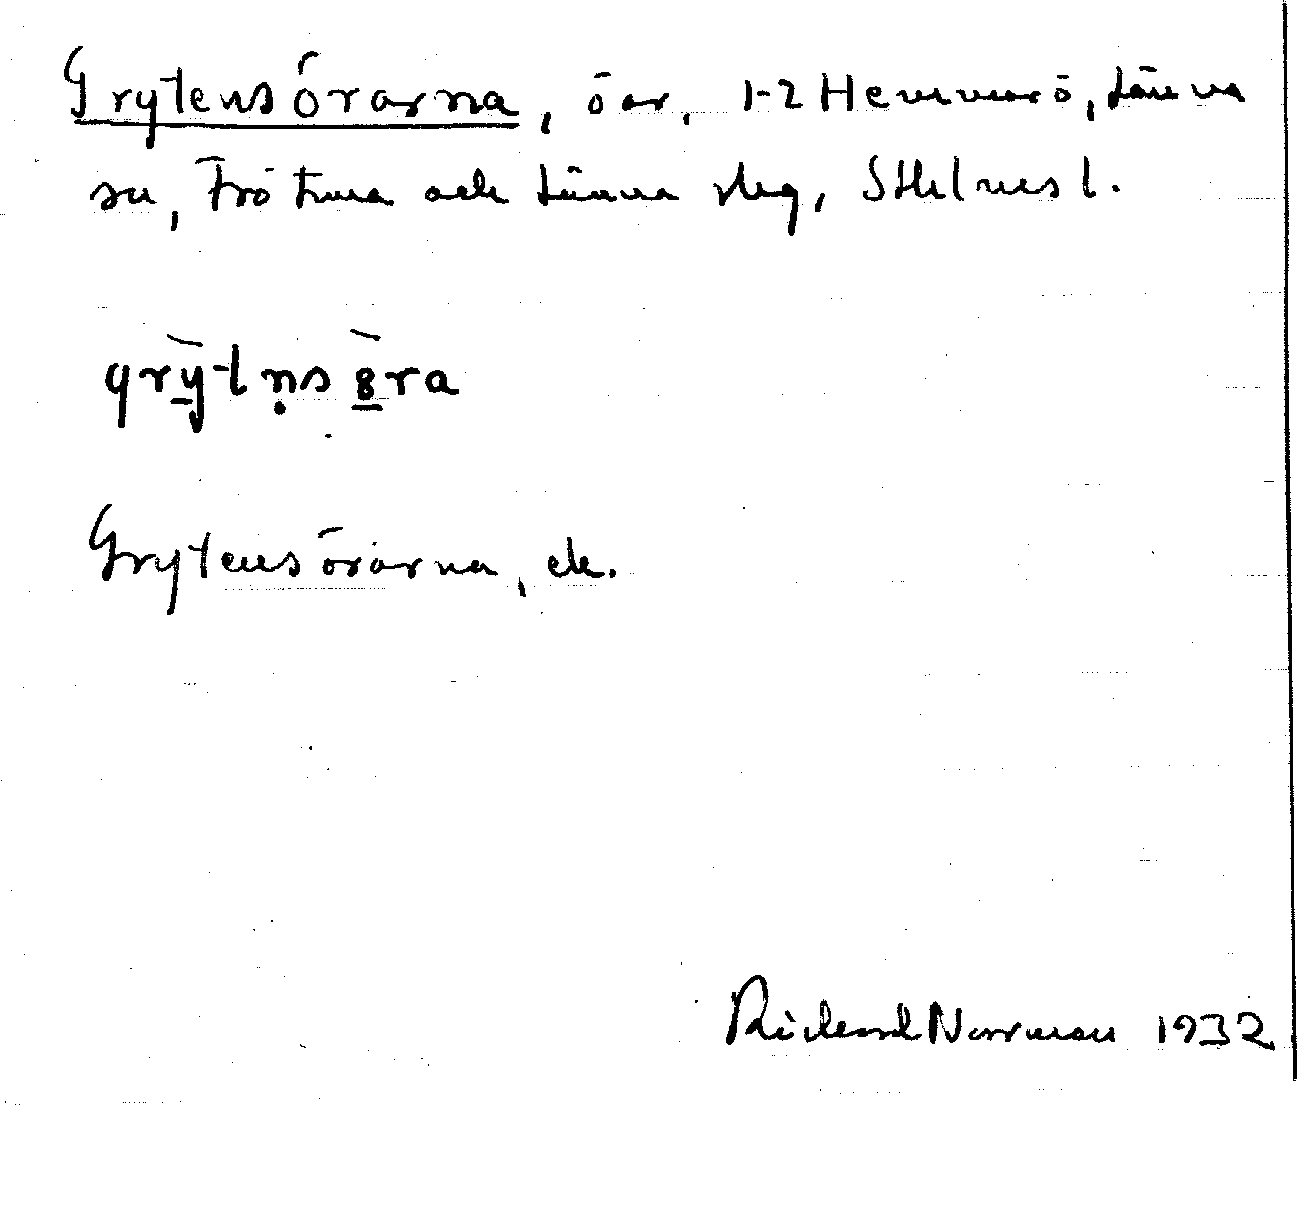 Grytensörarna, öar, 1-2 Hemmarö, Länna
sn, Frötuna och Länna skg, Sthlms l.
grỳtn̥söra
Grytensörarna, ek.
Richard Norrman 1932